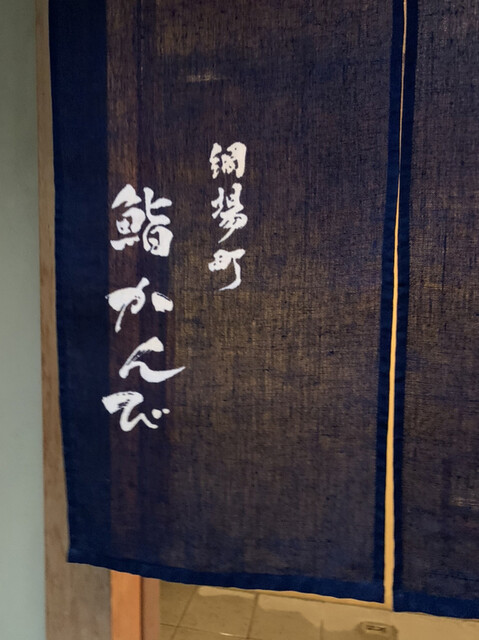 網場町
鮨かんび